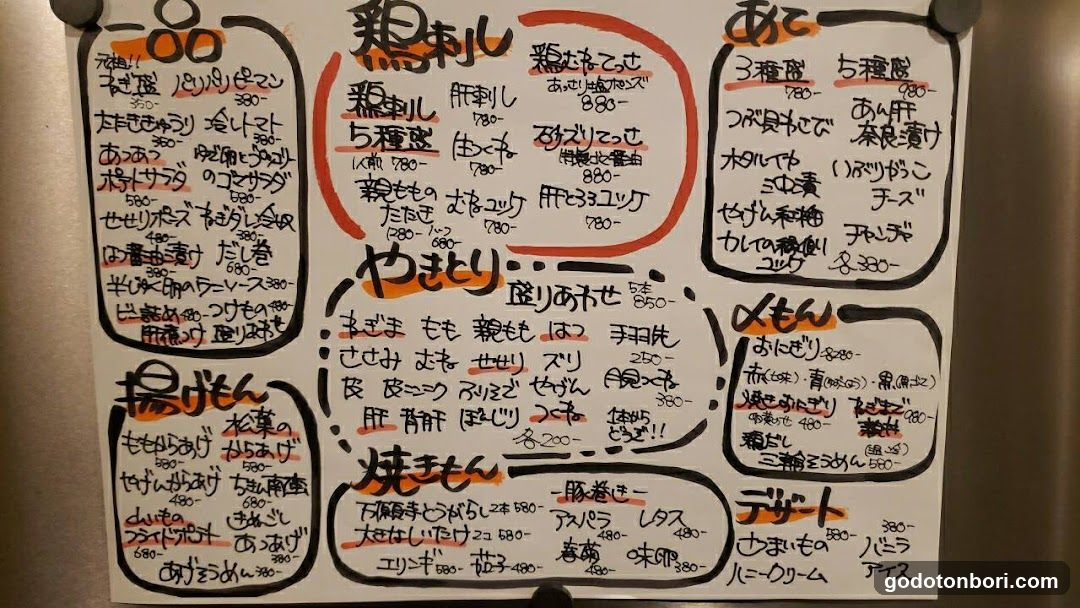 一品
元祖!!
ねぎ盛 パリパリピーマン
350- 380-
たたききゅうり 冷しトマト
380- 380-
あつあつ
ポテトサラダ のゴマサラダ
580- 580-
せせりポンズ ねぎダレ冷奴
480- 380-
はつ醤油漬け だし巻
380- 680-
半じゅく卵のウニソース 380-
480- つけもの 480-
盛りあわせ
揚げもん
松葉の
ももからあげ からあげ
580- 580-
やげんからあげ チキン南蛮
480- 680-
山いもの きぬごし
フライドポテト あつあげ
680- 380-
あげそうめん 380-
鶏刺し
鶏むねてっさ
あっさり塩ポンズ
880-
鶏刺し 肝刺し
780-
5種盛
1人前 780- 780-
砂ズリてっさ
880-
親ももの
たたき
1280- ハーフ 680-
むねユッケ
780-
肝とろろユッケ
780-
やきとり
盛りあわせ 5本 850-
ねぎま もも 親もも はつ 手羽先
250-
ささみ むね せせり ズリ
月見つくね
380-
皮 皮ニンニク ソリレス やげん
肝 背肝 ぼんじり つくね
各200-
1本から
どうぞ!!
焼きもん
万願寺とうがらし 2本 580-
大きなしいたけ 2コ 580-
エリンギ 580- 茄子 480-
-豚巻き-
アスパラ レタス
480- 480-
春菊 味卵
480- 380-
あて
3種盛 5種盛
780- 980-
つぶ貝わさび
あん肝
奈良漬け
ホタルイカ
沖漬
いぶりがっこ
チーズ
やげん和柚
チャンヂャ
各380-
〆もん
おにぎり 各280-
焼きおにぎり
480-
980-
鶏だし
三輪そうめん 580-
デザート
さつまいもの 580-
ハニークリーム
380-
バニラ
アイス
godotonbori.com